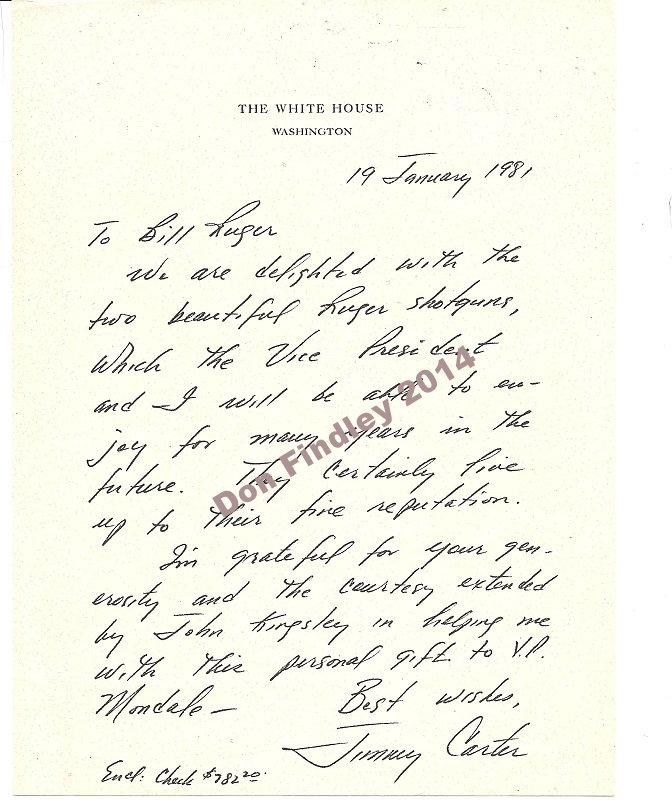 THE WHITE HOUSE
WASHINGTON
19 January 1981
To Bill Ruger
We are delighted with the
two beautiful Ruger shotguns,
which the Vice President
and I will be able to en-
joy for many years in the
future. They certainly live
up to their fine reputation.
I'm grateful for your gen-
erosity and the courtesy extended
by John Kingsley in helping me
with this personal gift to V.P.
Mondale — Best wishes,
Jimmy Carter
Encl: Check $782.20
Don Findley 2014